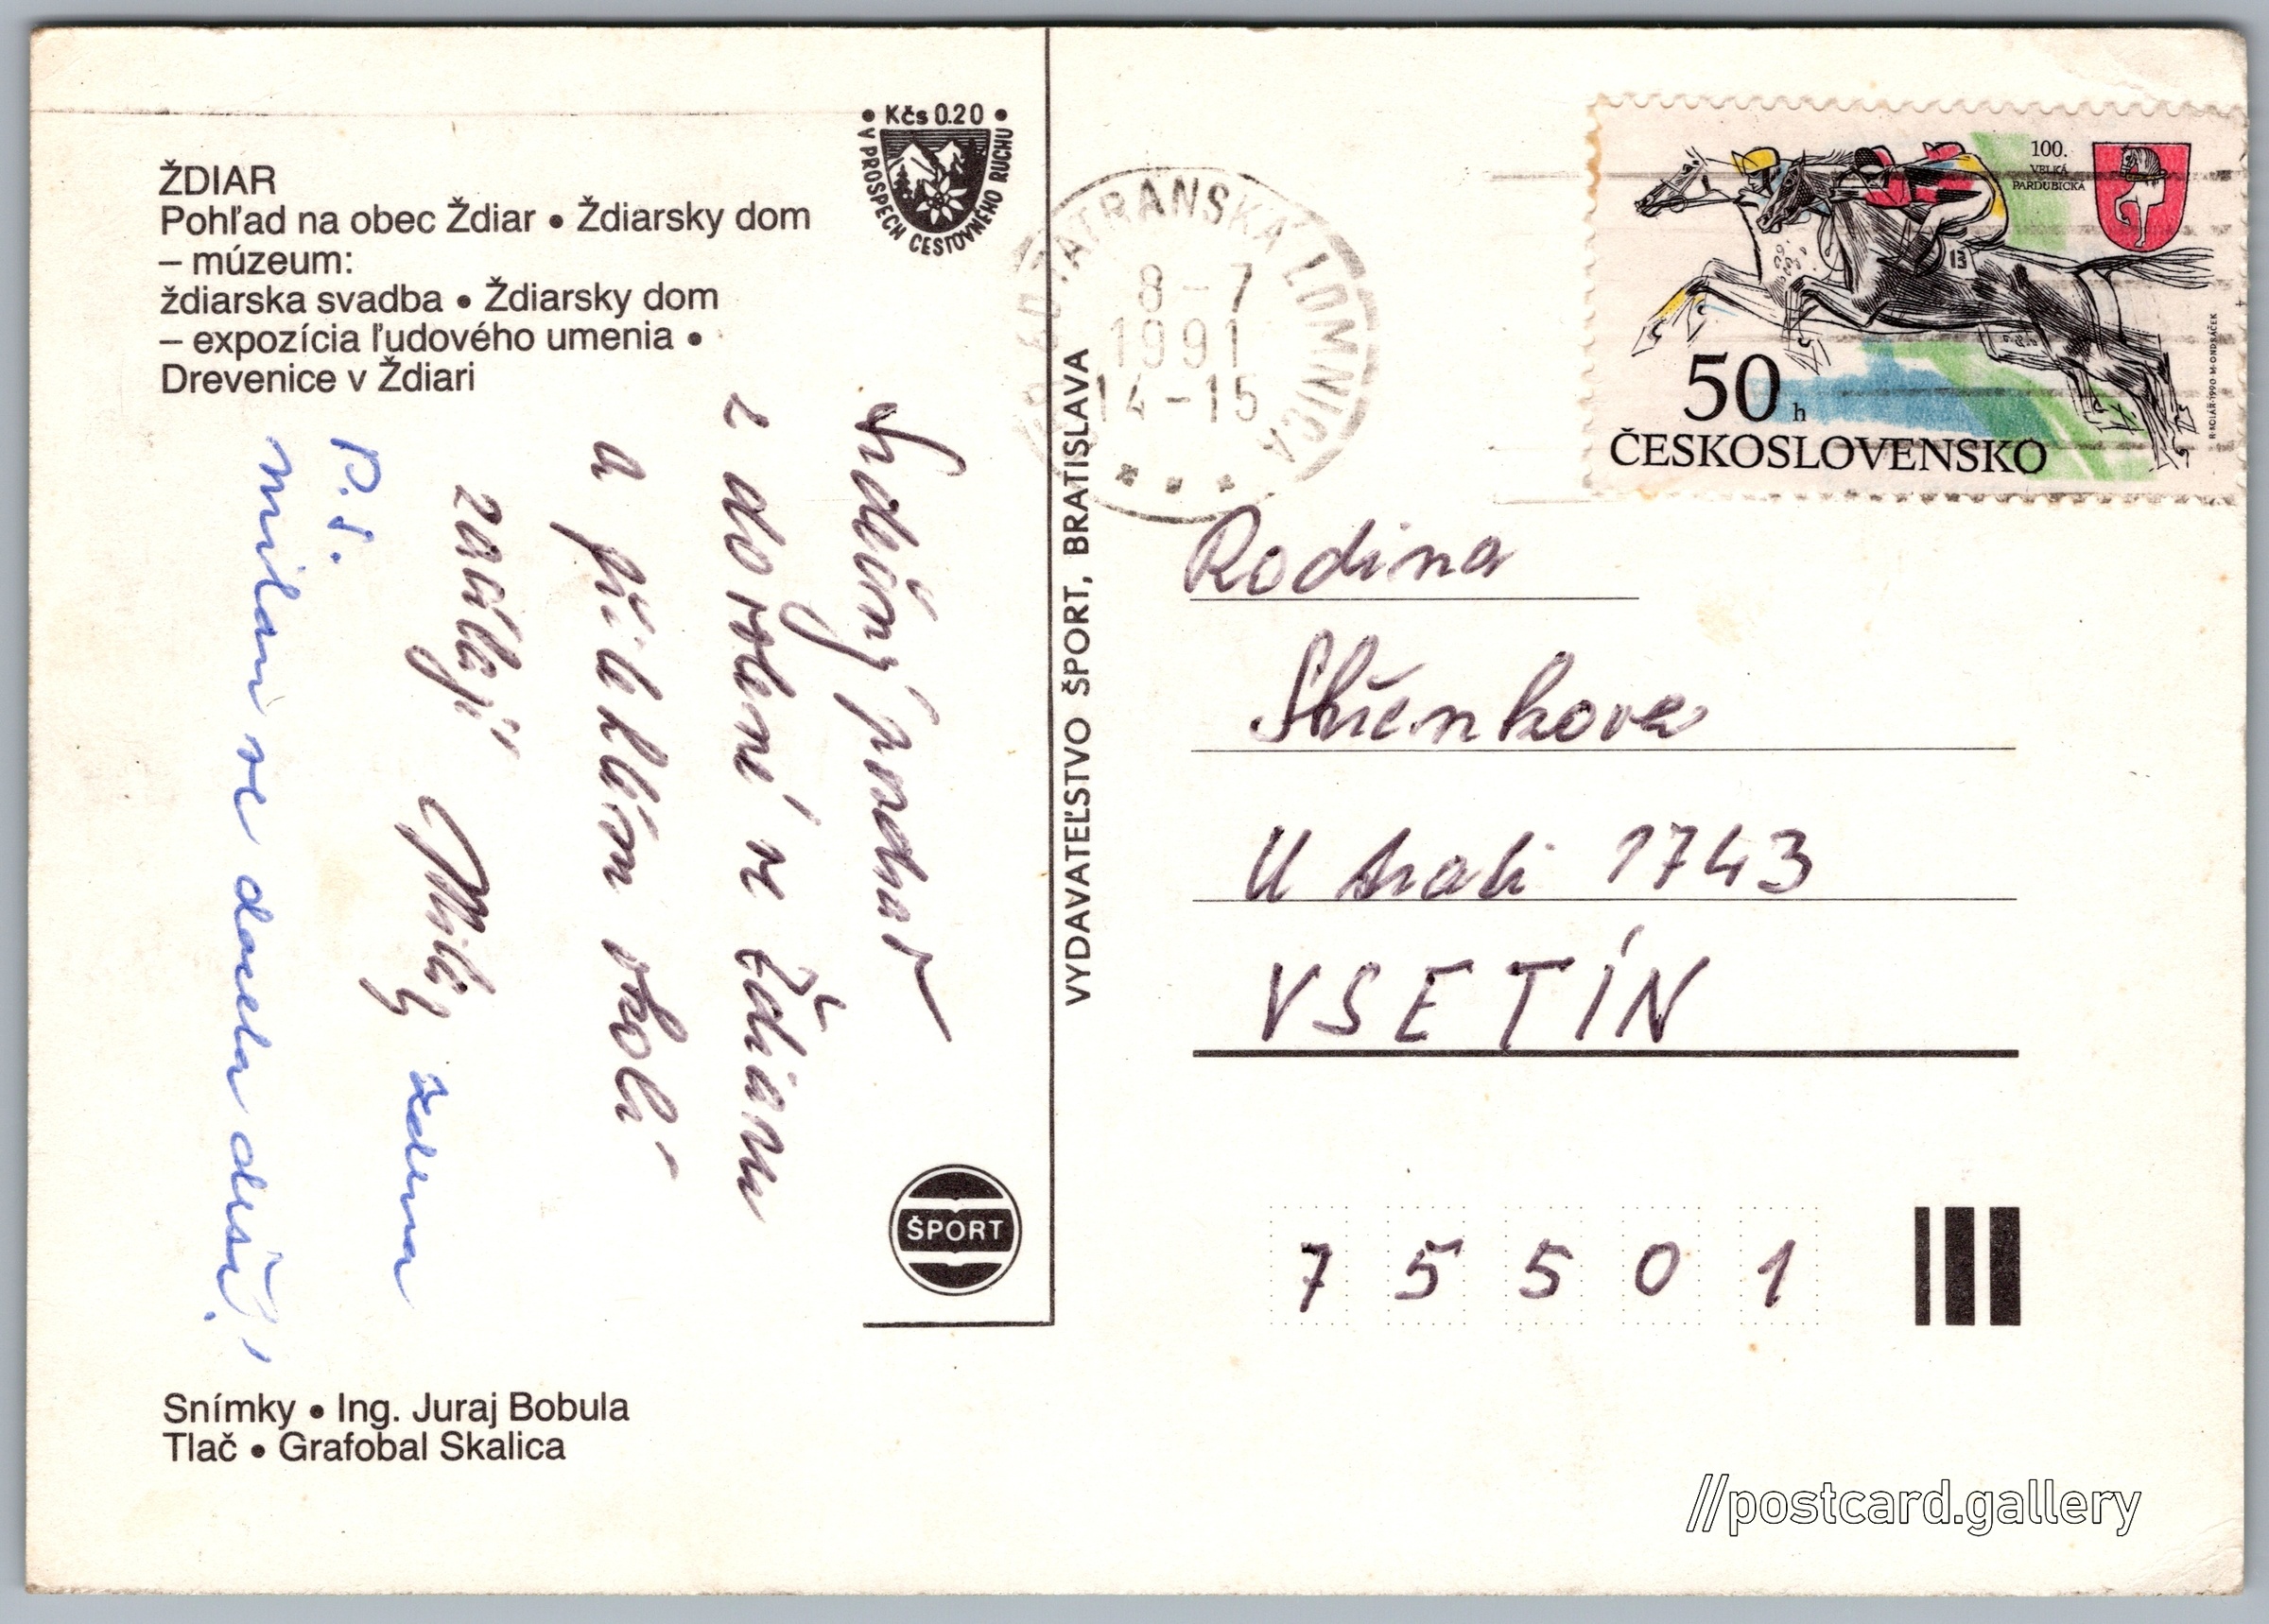 ŽDIAR
Pohľad na obec Ždiar • Ždiarsky dom
– múzeum:
ždiarska svadba • Ždiarsky dom
– expozícia ľudového umenia •
Drevenice v Ždiari
• Kčs 0.20 •
V PROSPECH CESTOVNÉHO RUCHU
Srdečný pozdrav
z dovolené ve Ždiaru
a při krásném okolí
zasílají
P.S.
se docela daří!
ŠPORT
Snímky • Ing. Juraj Bobula
Tlač • Grafobal Skalica
VYDAVATEĽSTVO ŠPORT, BRATISLAVA
TATRANSKÁ LOMNICA
8-7
1991
14-15
100.
VELKÁ
PARDUBICKÁ
13
50 h
ČESKOSLOVENSKO
R·KOLÁŘ·1990·M·ONDRÁČEK
Rodina
Střenkova
U trati 1743
VSETÍN
7 5 5 0 1
//postcard.gallery